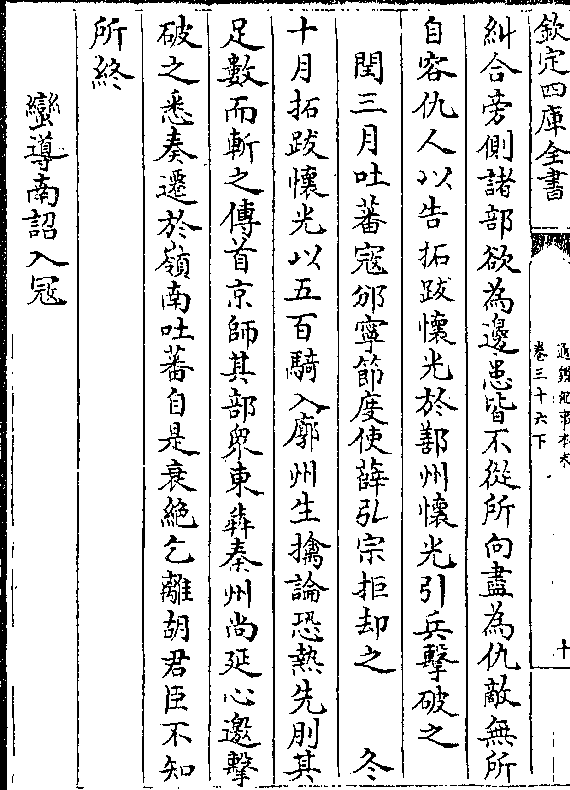 欽定四庫全書
通鑑紀事本末
卷三十六下
十
糾合旁側諸部欲為邊患皆不從所向盡為仇敵無所
自容仇人以告拓跋懷光於鄯州懷光引兵擊破之
閏三月吐蕃寇邠寧節度使薛弘宗拒却之　冬
十月拓跋懷光以五百騎入廓州生擒論恐熱先刖其
足數而斬之傳首京師其部衆東犇秦州尚延心邀擊
破之悉奏遷於嶺南吐蕃自是衰絶乞離胡君臣不知
所終
蠻導南詔入寇